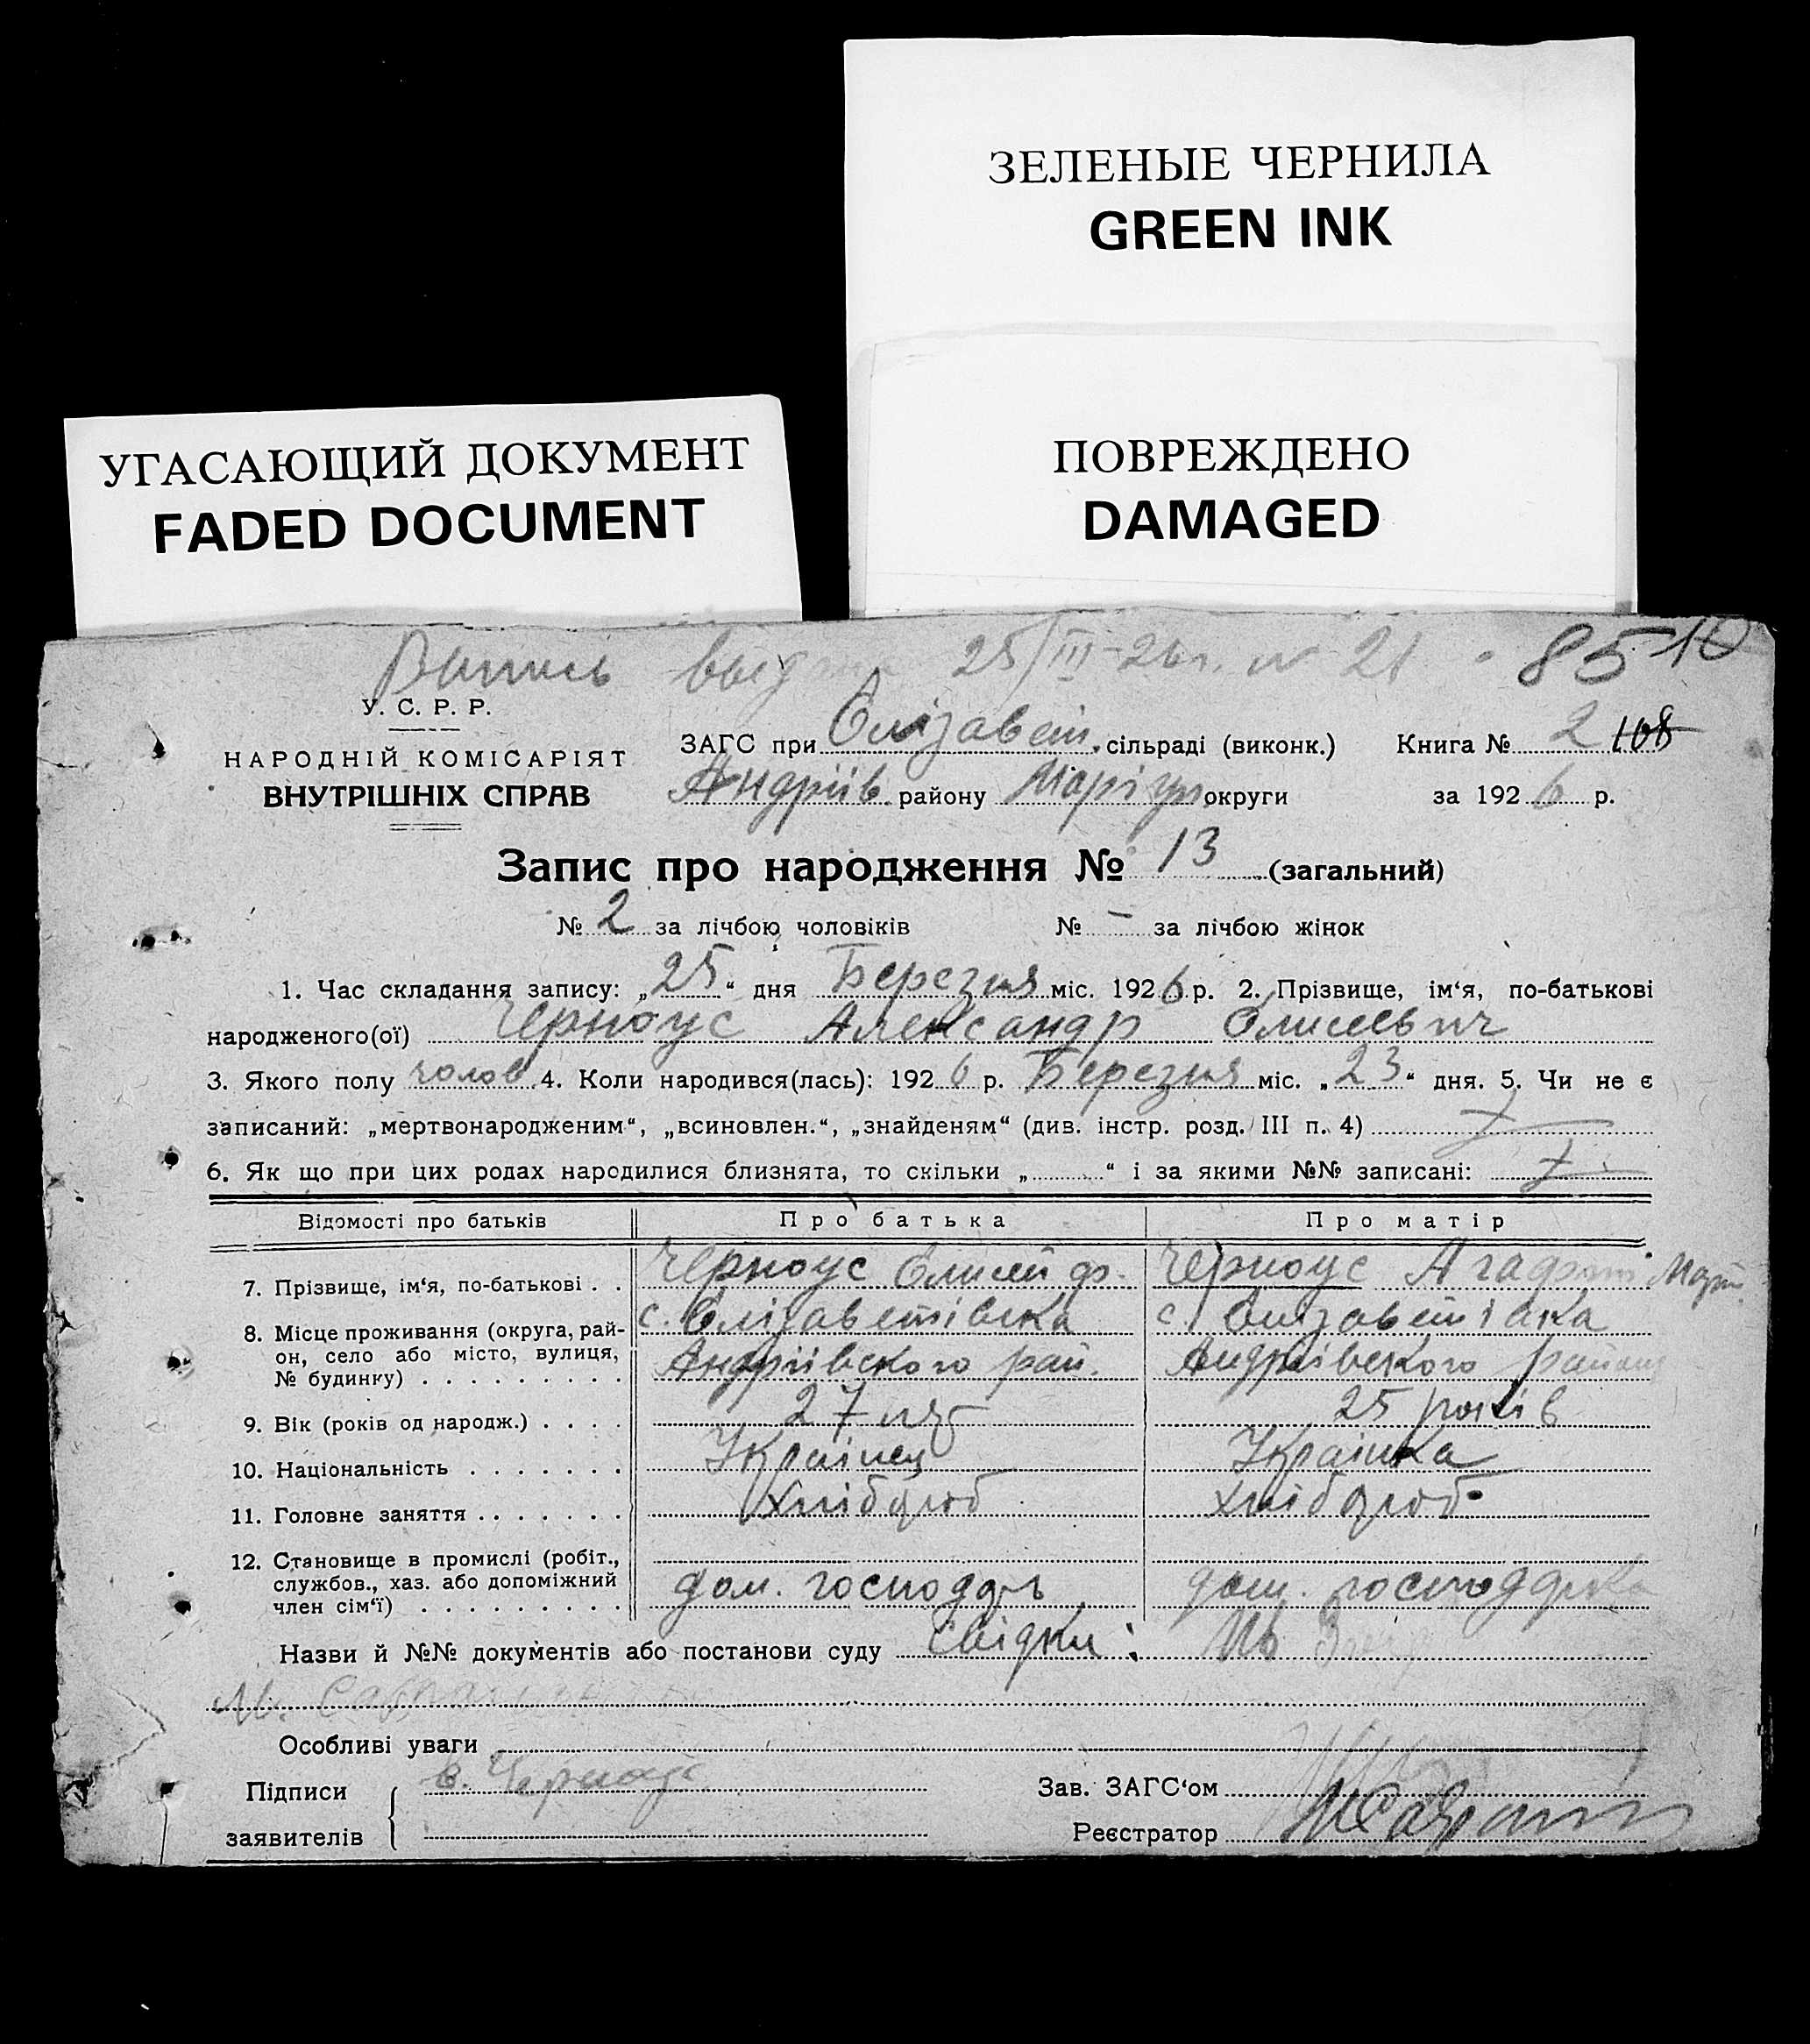 ЗЕЛЕНЫЕ ЧЕРНИЛА
GREEN INK
ПОВРЕЖДЕНО
DAMAGED
УГАСАЮЩИЙ ДОКУМЕНТ
FADED DOCUMENT
25/III-26г. № 21 85 10
У. С. Р. Р.
НАРОДНІЙ КОМІСАРІЯТ
ВНУТРІШНІХ СПРАВ
ЗАГС при Єлізавет. сільраді (виконк.) Книга № 2 108
Андріїв району Маріуп. округи за 1926 р.
Запис про народження № 13 (загальний)
№ 2 за лічбою чоловіків № – за лічбою жінок
1. Час складання запису: „25“ дня Березня міс. 1926 р. 2. Прізвище, ім‘я, по-батькові
народженого(ої) Черноус Александр Єлисеевич
3. Якого полу чолов 4. Коли народився(лась): 1926 р. Березня міс. „23“ дня. 5. Чи не є
записаний: „мертвонародженим“, „всиновлен.“, „знайденям“ (див. інстр. розд. III п. 4)
6. Як що при цих родах народилися близнята, то скільки „ “ і за якими №№ записані:
Відомості про батьків Про батька Про матір
7. Прізвище, ім‘я, по-батькові . . Черноус Єлисей ф. Черноус Март.
8. Місце проживання (округа, рай- с. Єлізаветівка с. Єлизаветівка
он, село або місто, вулиця, Андріївского рай. Андріївского району
№ будинку) . . . . . . . . .
9. Вік (років од народж.) . . . . 27 25 років
10. Національність . . . . . . . Українец Українка
11. Головне заняття . . . . . . . Хлібороб хлібороб
12. Становище в промислі (робіт.,
службов., хаз. або допоміжний дом. господарь дом. господарка
член сім‘ї) . . . . . . . . .
Назви й №№ документів або постанови суду Свідки:
М.
Особливі уваги
Підписи Черноус
заявителів
Зав. ЗАГС‘ом
Реєстратор